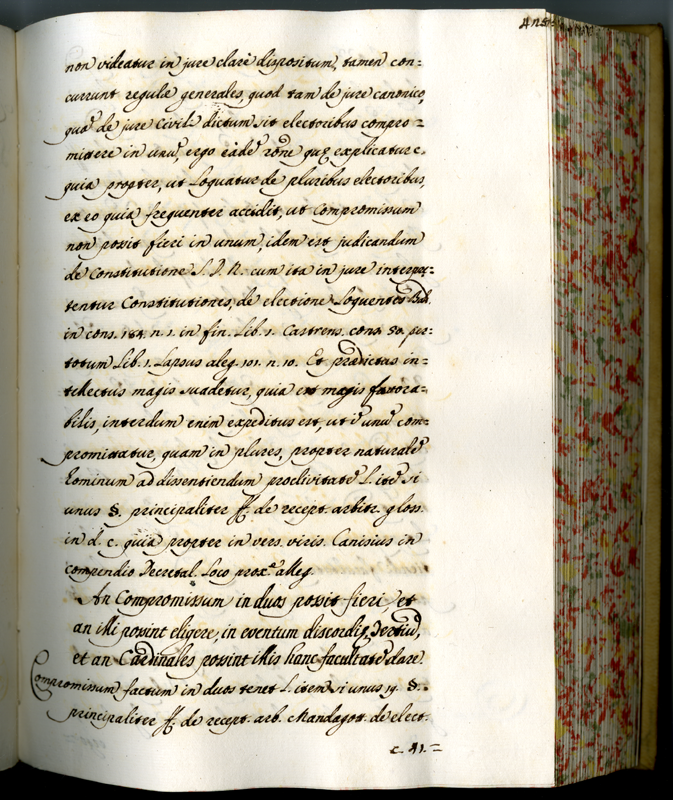 non videatur in jure clarè dispositum, tamen con=
currunt regulæ generales, quod tam de jure canonico,
quā de jure Civili dictum sit electoribus compro=
mittere in unū, ergo eadē rōne quę explicatur c.
quia propter, ut loquatur de pluribus electoribus,
ex eo quia frequenter accidit, ut Compromissum
non possit fieri in unum, idem est judicandum
de Constitutione S. D. N. cum ita in jure interpre=
tentur Constitutiones, de electione loquentes Bal.
in cons. 184. n. 1. in fin. Lib. 1. Castrens. cons. 30. per
totum Lib. 1. Lapsus aleg. 101. n. 10. Et prædictus in=
tellectus magis suadetur, quia est magis favora=
bilis, interdum enim expeditius est, ut ī unū com=
promittatur, quam in plures, propter naturalē
hominum ad dissentiendum proclivitatē L. itē si
unus §. principaliter ff. de recept. arbitr. gloss.
in d. c. quia propter in vers. viris. Canisius in
compendio Decretal. Loco prox.e alleg.
An Compromissum in duos possit fieri, et
an illi possint eligere, in eventum discordię, Tertiū,
et an Cardinales possint illis hanc facultatē dare.
Compromissum factum in duos tenet L. item si unus 17. §.
principaliter ff. de recept. arb. Mandagot. de elect.
c. 41. =